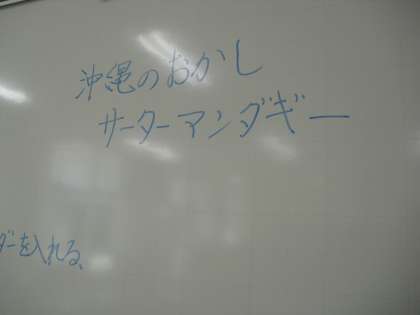 沖縄のおかし
サーターアンダギー
ダーを入れる、